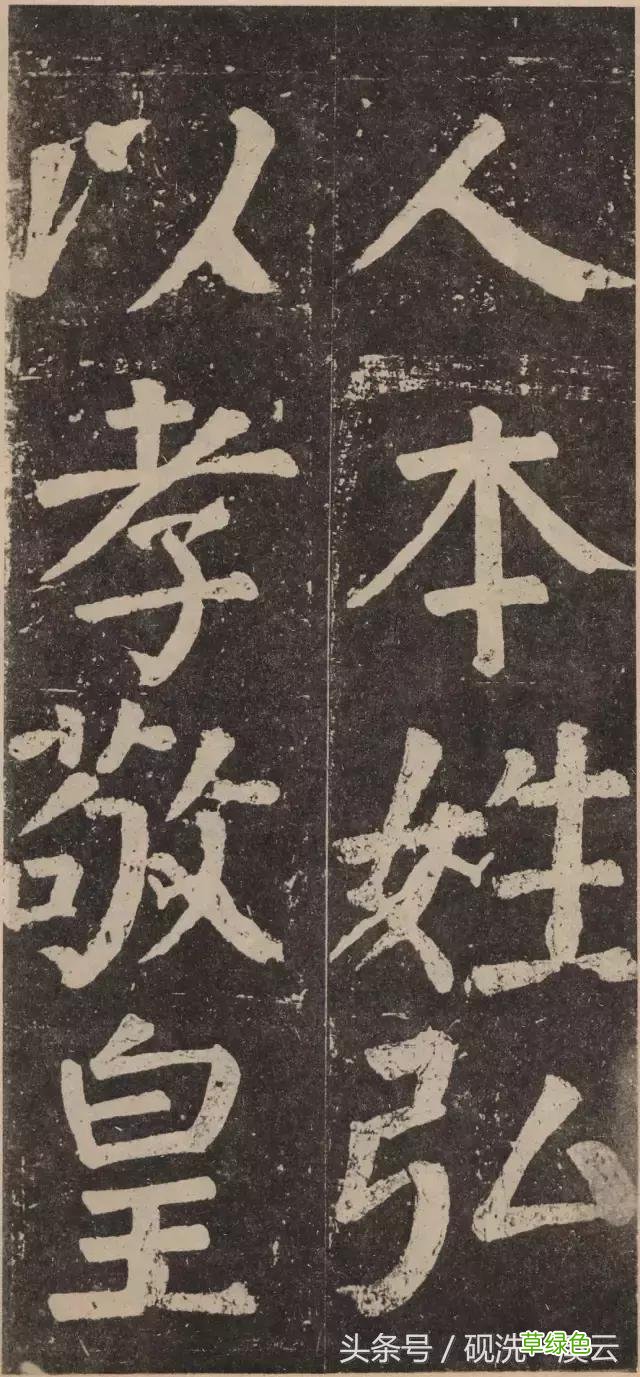 人本姓弘
以孝敬皇
头条号／砚洗
草绿色
云